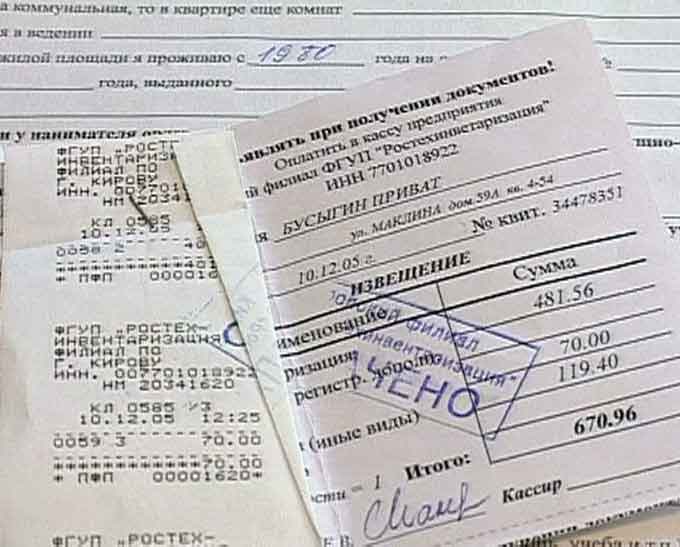 а коммунальная, то в квартире еще комнат
я в ведении
жилой площади я проживаю с 1980 года на
года, выданного
и у нанимателя
ФГУП „РОСТЕХ-
ИНВЕНТАРИЗ
ФИЛИАЛ ПО
Г. КИРОВУ
ИНН. 007701018
НМ 2034
КЛ 0585
10.12.05
* ПФП 000016
ФГУП „РОСТЕХ-
ИНВЕНТАРИЗАЦИЯ
ФИЛИАЛ ПО
Г. КИРОВУ
ИНН. 007701018922
НМ 20341620
КЛ 0585 3
10.12.05 12:25
0059 3 70.00
**********70.00
* ПФП 00001620*
ФГУП „РОСТЕХ-
являть при получении документов!
Оплатить в кассу предприятия
й филиал ФГУП "Ростехинветаризация"
ИНН 7701018922
я БУСЫГИН ПРИВАТ
ул. МАКЛИНА дом.59А кв. 4-54
10.12.05 г. № квит. 34478351
ИЗВЕЩЕНИЕ
именование Сумма
481.56
ризация 70.00
регистр. 119.40
(иные виды)
670.96
Итого:
сти = 1
Кассир
филиал
инвентаризация"
ЧЕНО
учеба и т.п.